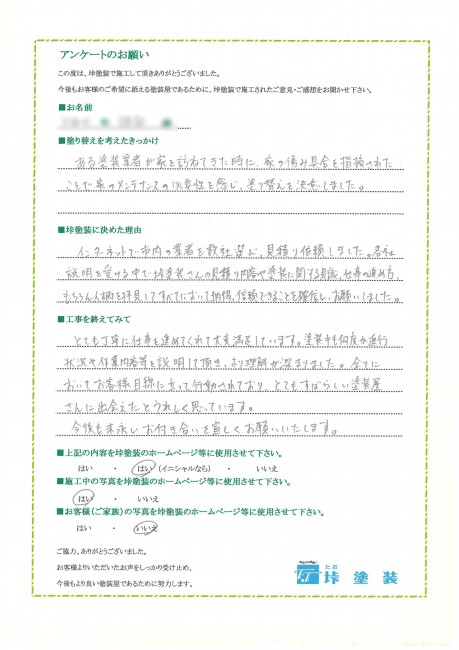 アンケートのお願い
この度は、垰塗装で施工して頂きありがとうございました。
今後もお客様のご希望に添える塗装屋であるために、垰塗装で施工されたご意見・ご感想をお聞かせ下さい。
■お名前
■塗り替えを考えたきっかけ
ある塗装業者が家を訪ねてきた時に、家の傷み具合を指摘された
ことで家のメンテナンスの必要性を感じ、塗り替えを決意しました。
■垰塗装に決めた理由
インターネットで市内の業者を数社選び、見積り依頼しました。各社
説明を受ける中で垰塗装さんの見積り内容や塗装に関する見識、仕事の進め方、
もちろん人柄を拝見してすべてにおいて納得、信頼できることを確信し、お願いしました。
■工事を終えてみて
とても丁寧に仕事を進めてくれて大変満足しています。塗装中も何度か進行
状況や作業内容等を説明して頂き、より理解が深まりました。全てに
おいてお客様目線に立って行動されており、とてもすばらしい塗装屋
さんに出会えたとうれしく思っています。
今後も末永いお付き合いを宜しくお願いいたします。
■上記の内容を垰塗装のホームページ等に使用させて下さい。
はい ・ はい (イニシャルなら) ・ いいえ
■施工中の写真を垰塗装のホームページ等に使用させて下さい。
はい ・ いいえ
■お客様(ご家族)の写真を垰塗装のホームページ等に使用させて下さい。
はい ・ いいえ
ご協力、ありがとうございました。
お客様よりいただいたお声をしっかり受け止め、
今後もより良い塗装屋であるために努力します。
たお
垰塗装